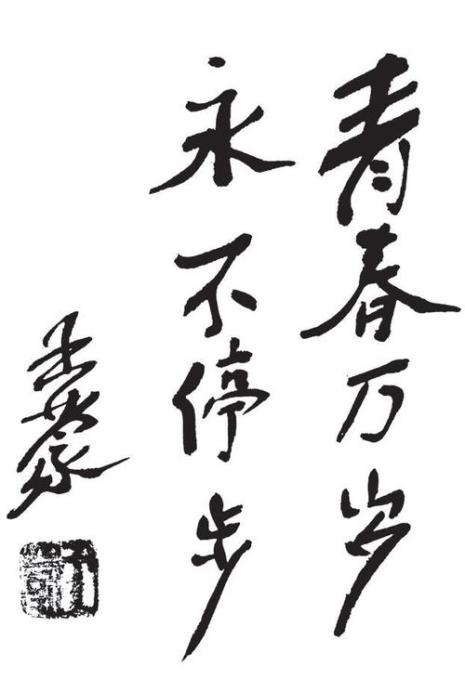 青春万岁
永不停步
王蒙